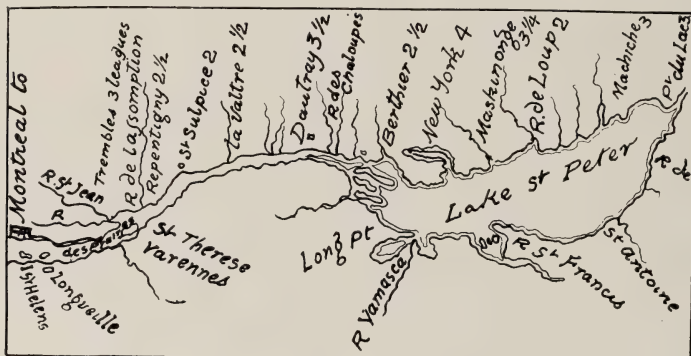 Montreal to
Trembles 3 leagues
R de lassomption
Repentigny 2½
o St Sulpice 2
La Valtre 2½
Dautray 3½
R des
Chaloupes
Berthier 2½
New York 4
Maskinonge
3¼
R. de Loup 2
Machiche 3
Pt du Lac 3
R. St Jean
R
des Prairies
St Therese
Varennes
Longueille
St Helens
8
Long Pt
Lake St Peter
R Yamasca
R St Francis
St Antoine
R de